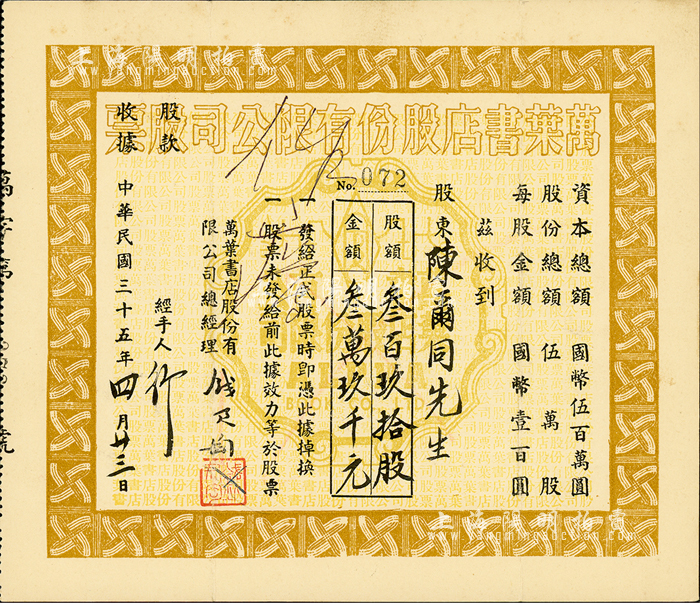 上海陽明拍賣
www.yangmingauction.com
萬葉書店股份有限公司股票
資本總額 國幣伍百萬圓
股份總額 伍萬股
每股金額 國幣壹百圓
茲收到
股東陳爾同先生
No. 072
股額 叁百玖拾股
金額 叁萬玖千元
一發給正式股票時卽憑此據掉換
一股票未發給前此據效力等於股票
萬葉書店股份有
限公司總經理
經手人
中華民國三十五年四月廿三日
股款
收據
上海陽明拍賣
www.yangmingauction.com